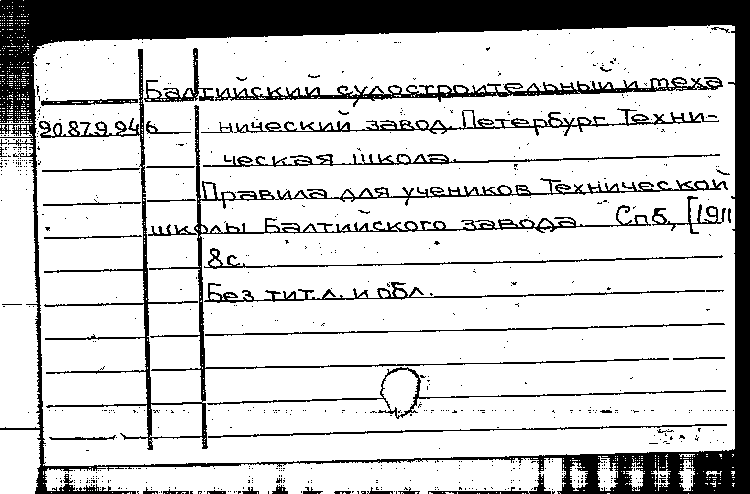 Балтийский судостроительный и меха-
20.87.9.946 нический завод. Петербург. Техни-
ческая школа.
Правила для учеников Технической
школы Балтийского завода. Спб., [1911
8с.
Без тит.л. и обл.